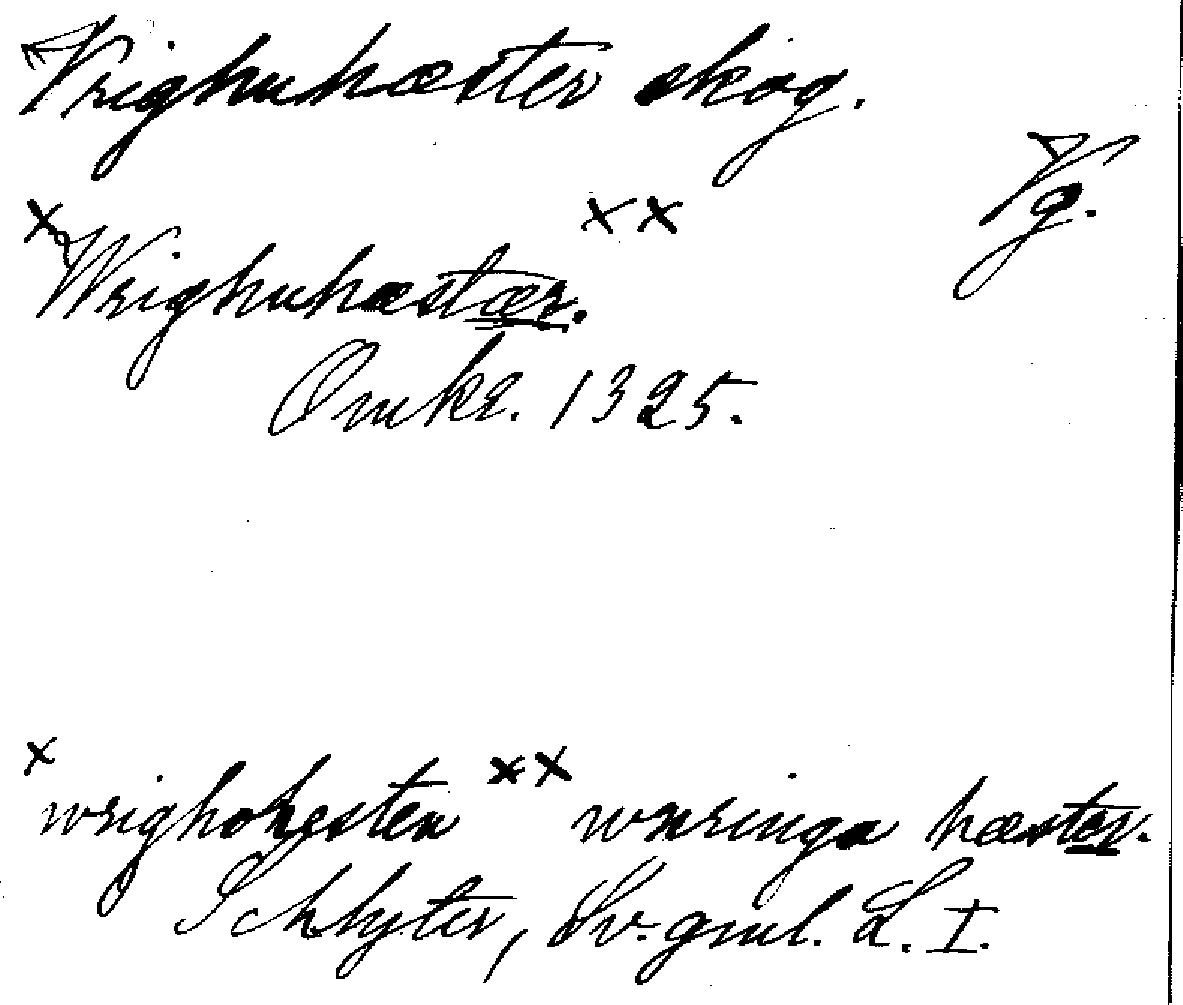 Vrighuhæster skog.
Vg.
× Wrighuhæstær. ××
Omkr. 1325.
× wrighohesten ×× wæringa hæstær.
Schlyter, Sv. gml. L. I.